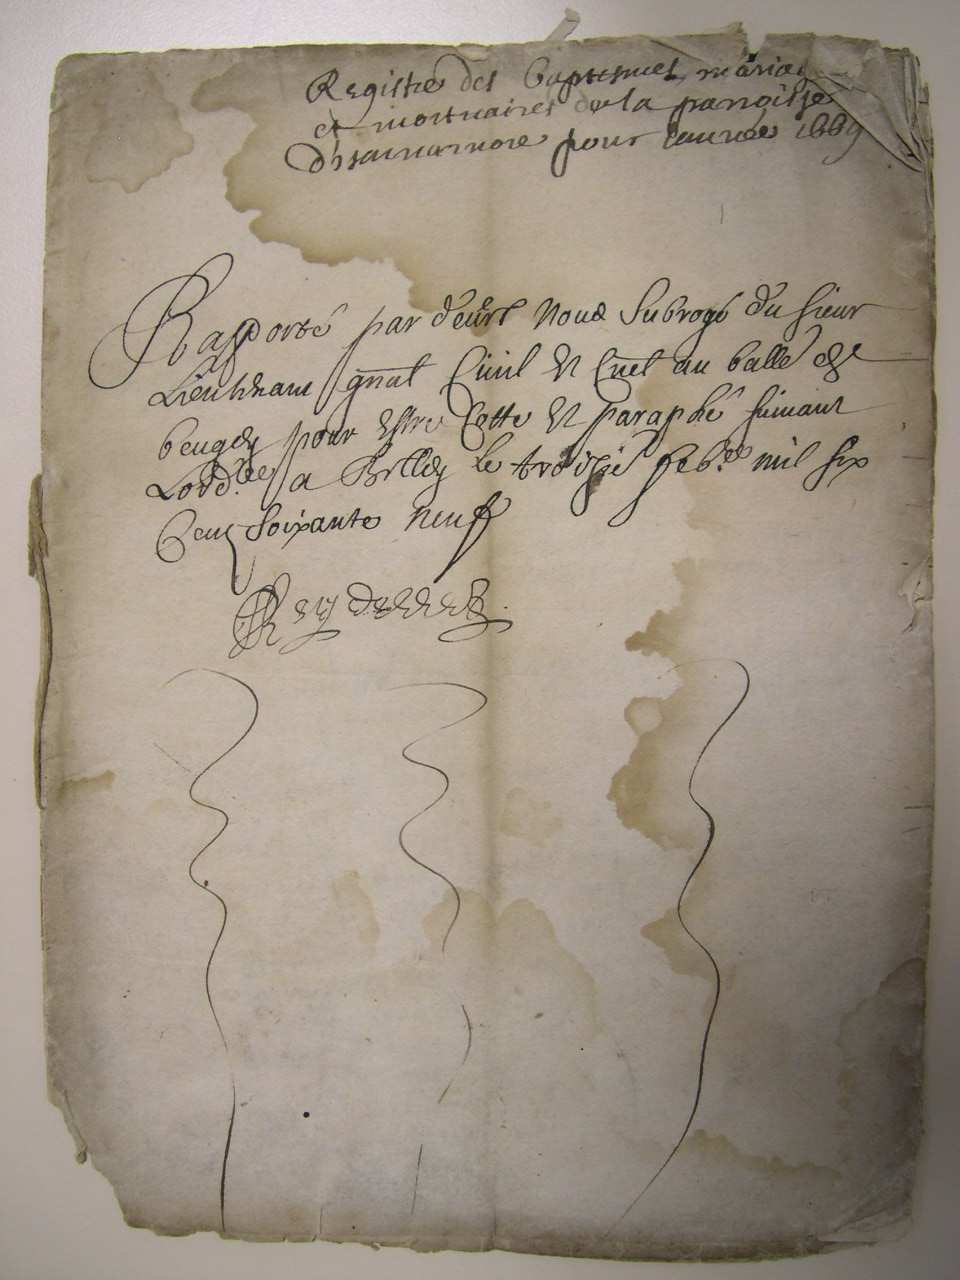 Registre des baptesmes mariag
et mortuaires de la parroisse
d'Isarnamore pour l'année 1669
Rapporté par deuers Nous Subrogé du sieur
Lieutenant gnal Ciuil et Cnel au balle de
beugey pour estre Cotte et paraphé suiuant
Lord.ce a Belley le troisie feb.er mil six
Cens soixante neuf